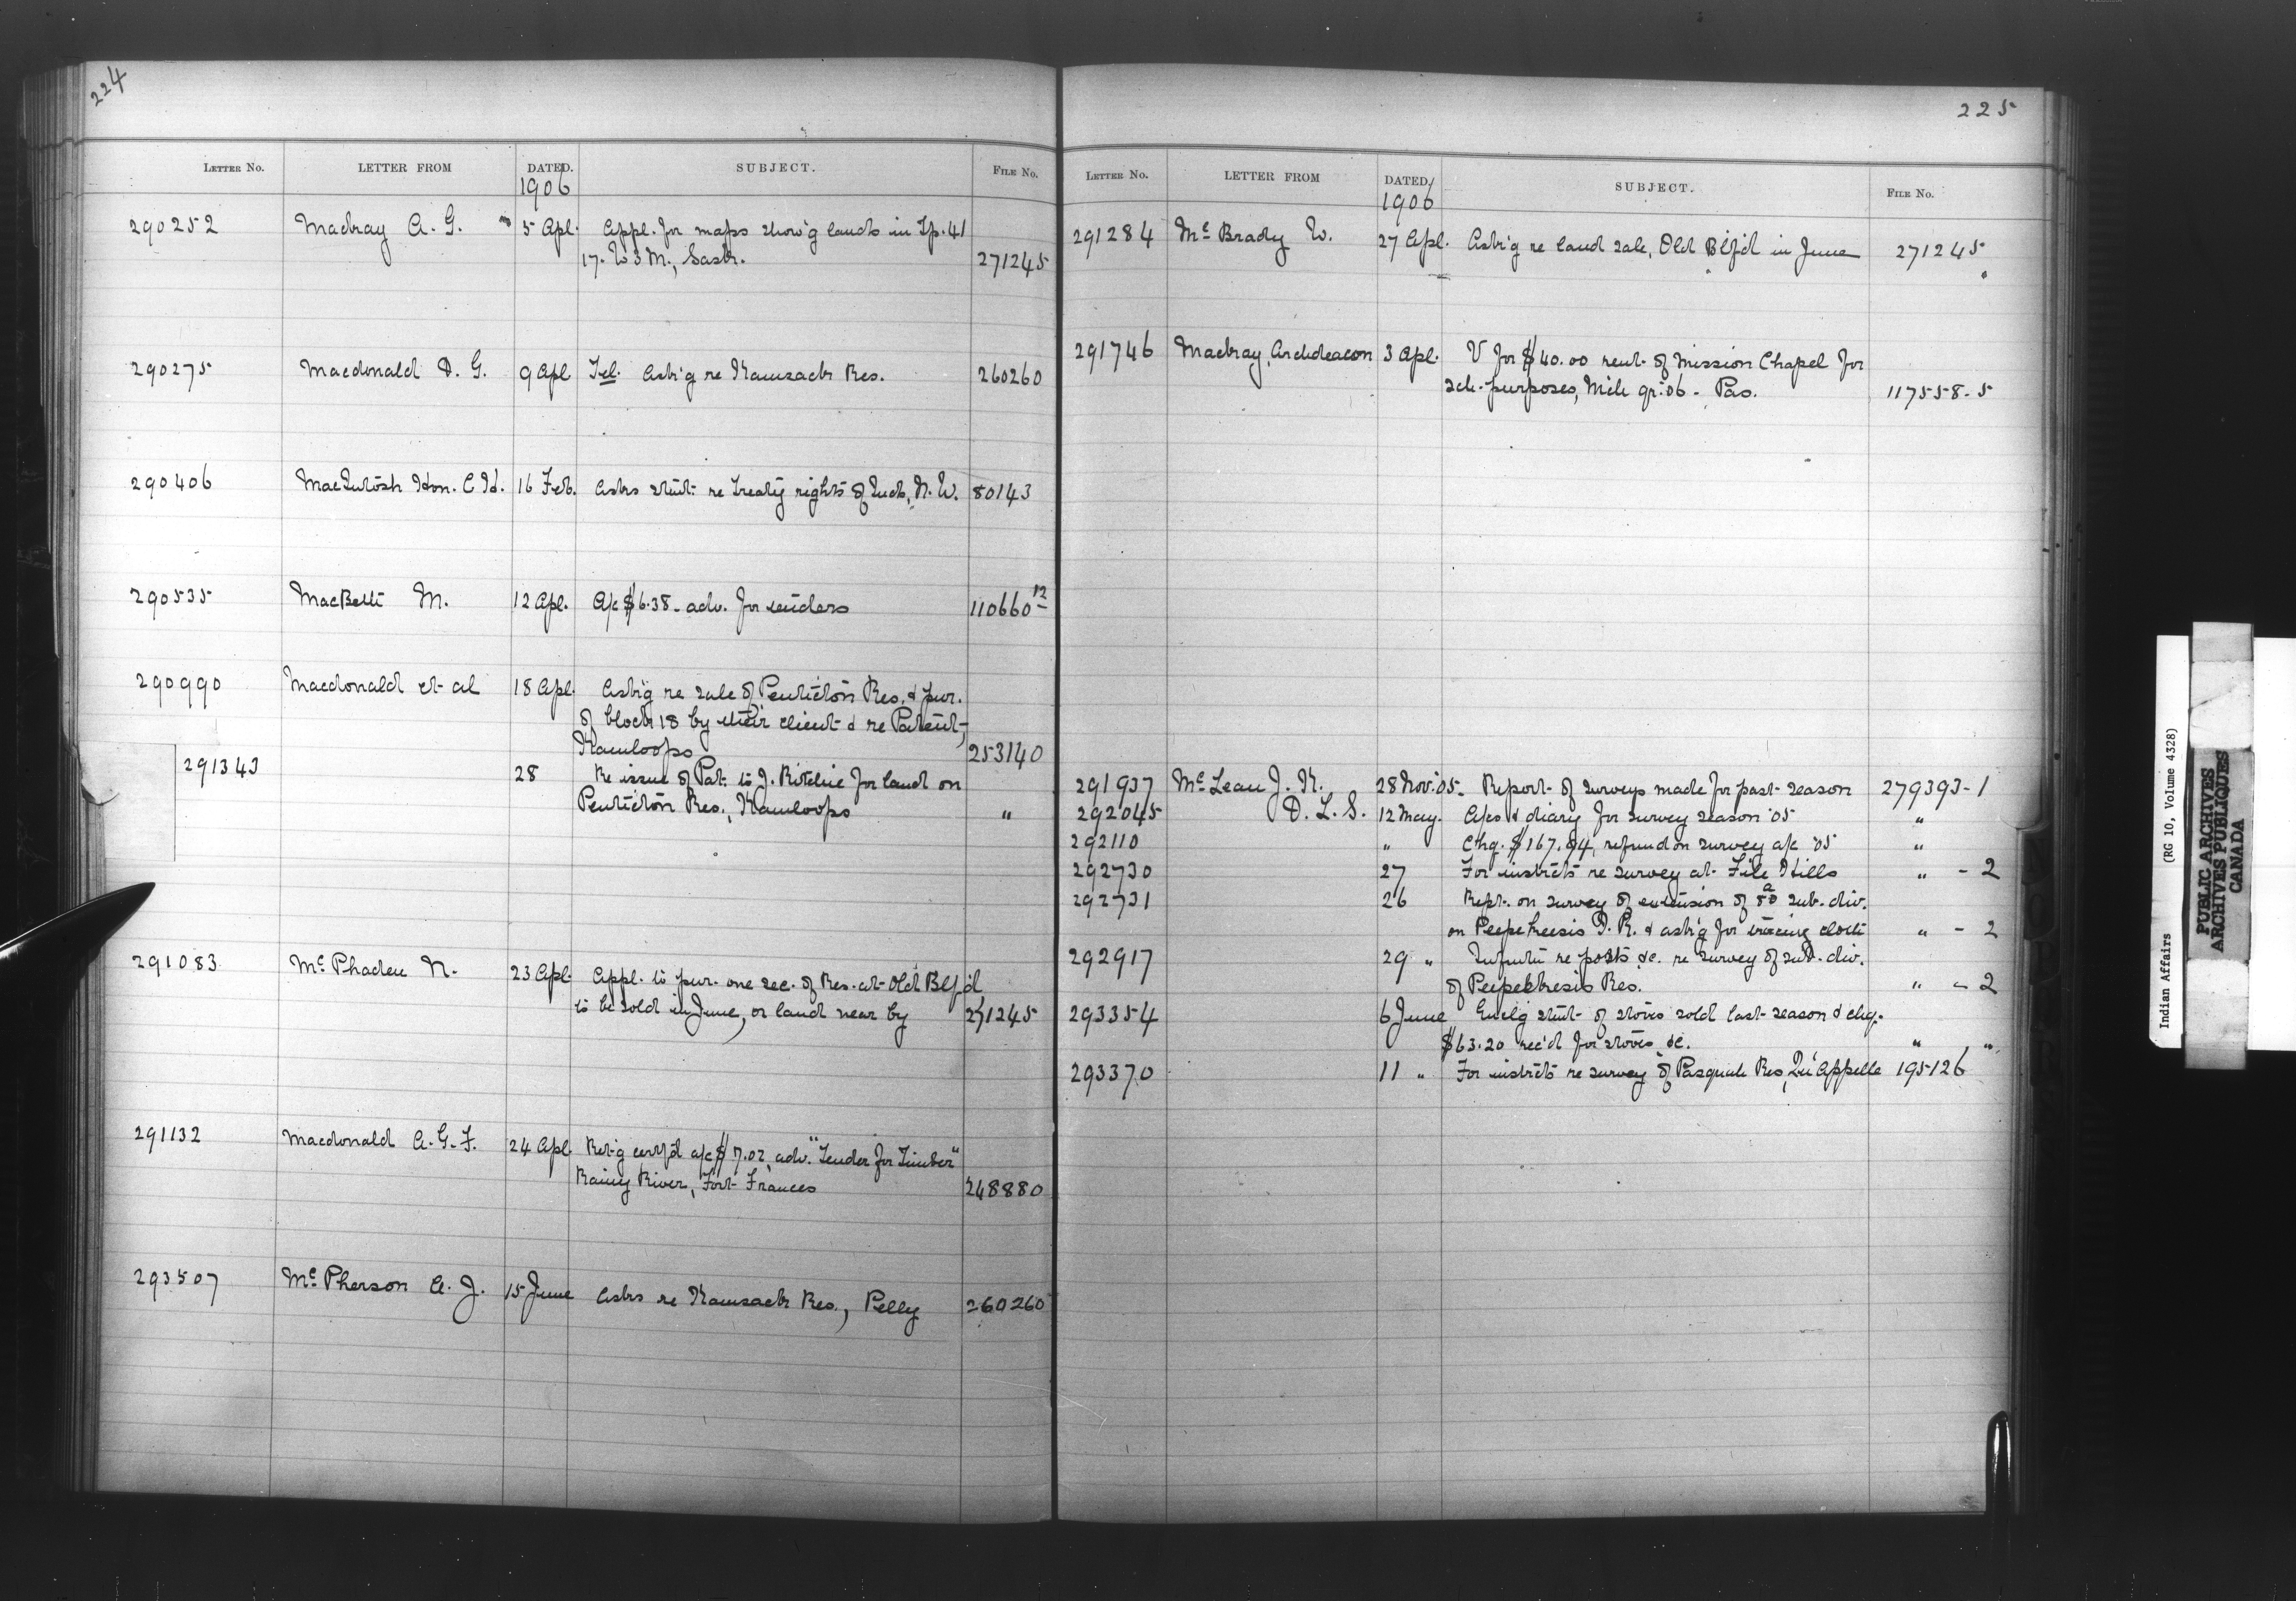 224
LETTER NO. LETTER FROM DATED. SUBJECT. FILE NO.
1906
290252 Mackay A. G. 5 Apl. Appl. for maps show'g lands in Tp. 41
17. W 3 M., Sask. 271245
290275 Macdonald D. G. 9 Apl Tel. Ask'g re Kamsack Res. 260260
290406 MacIntosh Hon. C H. 16 Feb. Asks stmt. re treaty rights of Inds, N. W. 80143
290535 MacBeth M. 12 Apl. A/c $6.38 - adv. for tenders 110660 12
290990 Macdonald et al 18 Apl. Ask'g re sale of Penticton Res. & pur.
of block 18 by their client & re Patent,
Kamloops 253140
291343 28 Re issue of Pat. to J. Ritchie for land on
Penticton Res., Kamloops "
291083 Mc Phaden N. 23 Apl. Appl. to pur. one sec. of Res. at Old Blf'd
to be sold in June, or land near by 271245
291132 Macdonald A. G. F. 24 Apl. Ret'g certf'd a/c $7.02, adv. "Tender for Timber"
Rainy River, Fort Frances 248880
293507 Mc Pherson A. J. 15 June Asks re Kamsack Res., Pelly 260260
225
LETTER NO. LETTER FROM DATED SUBJECT. FILE NO.
1906
291284 Mc Brady W. 27 Apl. Ask'g re land sale, Old Blf'd in June 271245
291746 Mackay, Archdeacon 3 Apl. V for $40.00 rent of Mission Chapel for
sch. purposes, Mch qr. '06 - Pas. 117558-5
291937 Mc Lean J. K. 28 Nov. '05. Report of surveys made for past season 279393-1
292045 D. L. S. 12 May. A/cs & diary for survey season '05 "
292110 " Chq. $167.94, refund on survey a/c '05 "
292730 27 For instrcts re survey at File Hills " - 2
292731 26 Rept. on survey of extension of a sub. div.
on Peepekeesis I. R. & ask'g for tracing cloth " - 2
292917 29 " re posts &c. re survey of sub. div.
of Peepeekeesis Res. " - 2
293354 6 June Enclg stmt. of stores sold last season & chq.
$63.20 rec'd for stores &c. " "
293370 11 " For instrcts re survey of Pasquah Res, Qu'Appelle 195126
Indian Affairs (RG 10, Volume 4328)
PUBLIC ARCHIVES
ARCHIVES PUBLIQUES
CANADA